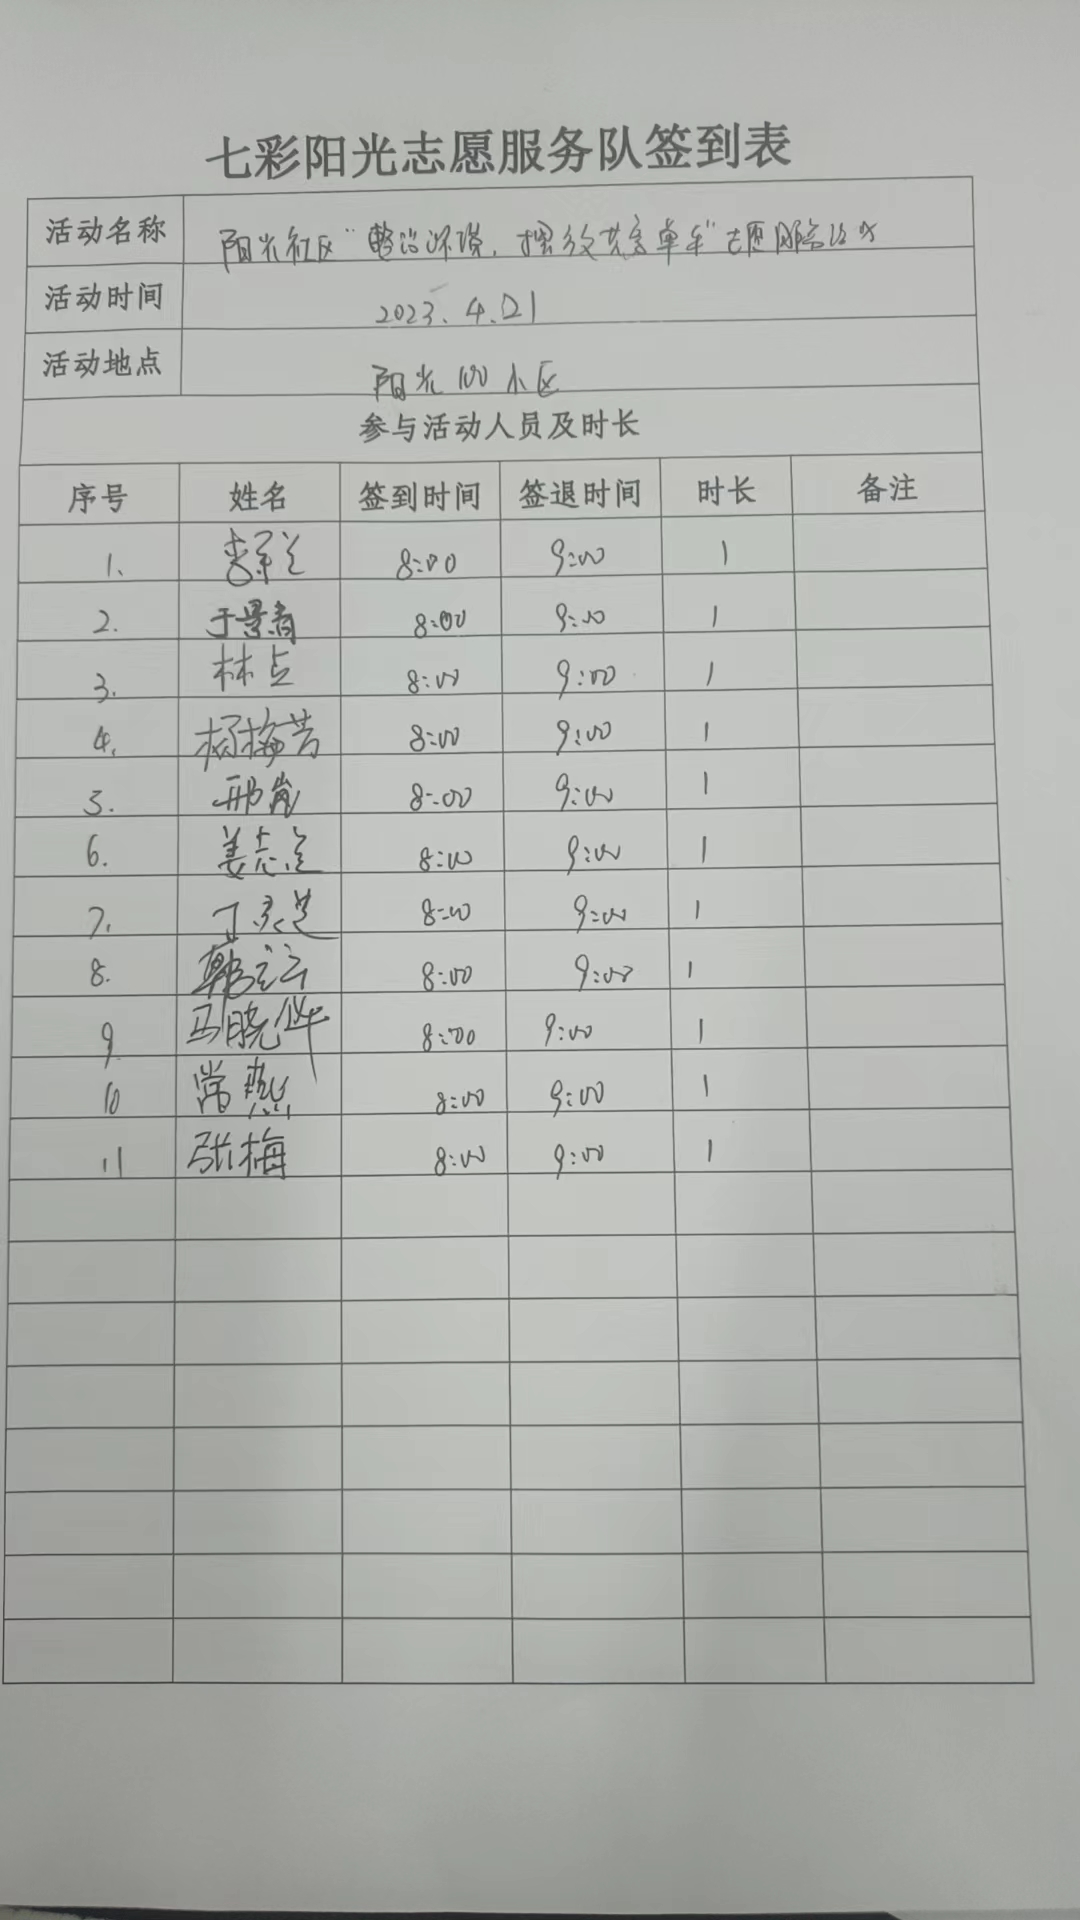 七彩阳光志愿服务队签到表
活动名称 阳光社区"整治环境,摆放共享单车"志愿服务活动
活动时间 2023.4.21
活动地点 阳光100小区
参与活动人员及时长
序号 姓名 签到时间 签退时间 时长 备注
1. 8:00 9:00 1
2. 于景 8:00 9:00 1
3. 林 8:00 9:00 1
4. 杨梅芳 8:00 9:00 1
5. 邢岚 8:00 9:00 1
6. 姜志 8:00 9:00 1
7. 丁 8:00 9:00 1
8. 韩 8:00 9:00 1
9 马晓华 8:00 9:00 1
10 常燕 8:00 9:00 1
11 张梅 8:00 9:00 1